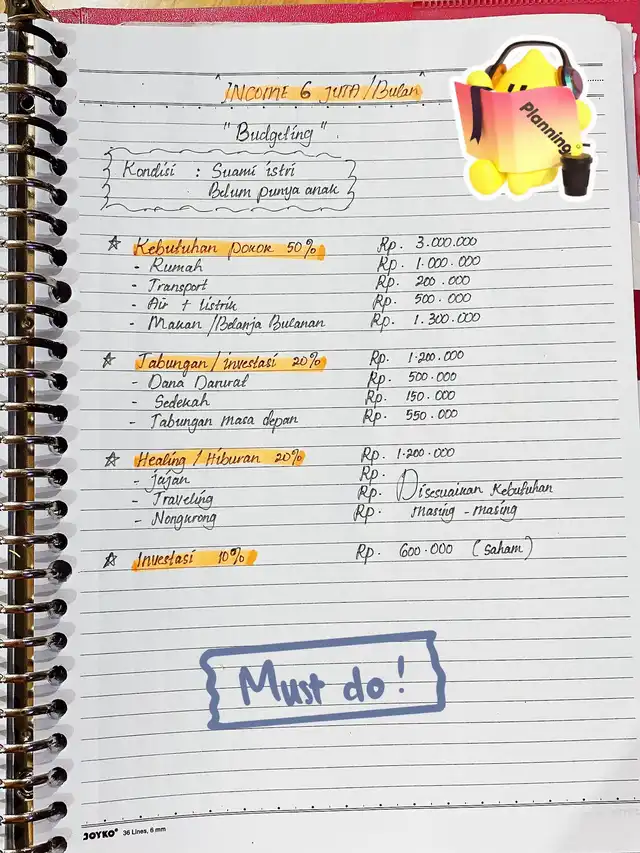 INCOME 6 JUTA /Bulan
"Budgeting"
Planning
Kondisi : Suami istri
Belum punya anak
☆ Kebutuhan pokok 50% Rp. 3.000.000
- Rumah Rp. 1.000.000
- Transport Rp. 200.000
- Air + listrik Rp. 500.000
- Makan /Belanja Bulanan Rp. 1.300.000
☆ Tabungan / investasi 20% Rp. 1.200.000
- Dana Darurat Rp. 500.000
- Sedekah Rp. 150.000
- Tabungan masa depan Rp. 550.000
☆ Healing / Hiburan 20% Rp. 1.200.000
- Jajan Rp.
- Traveling Rp. Disesuaikan Kebutuhan
- Nongkrong Rp. masing-masing
☆ Investasi 10% Rp. 600.000 (saham)
Must do!
JOYKO® 36 Lines, 6 mm